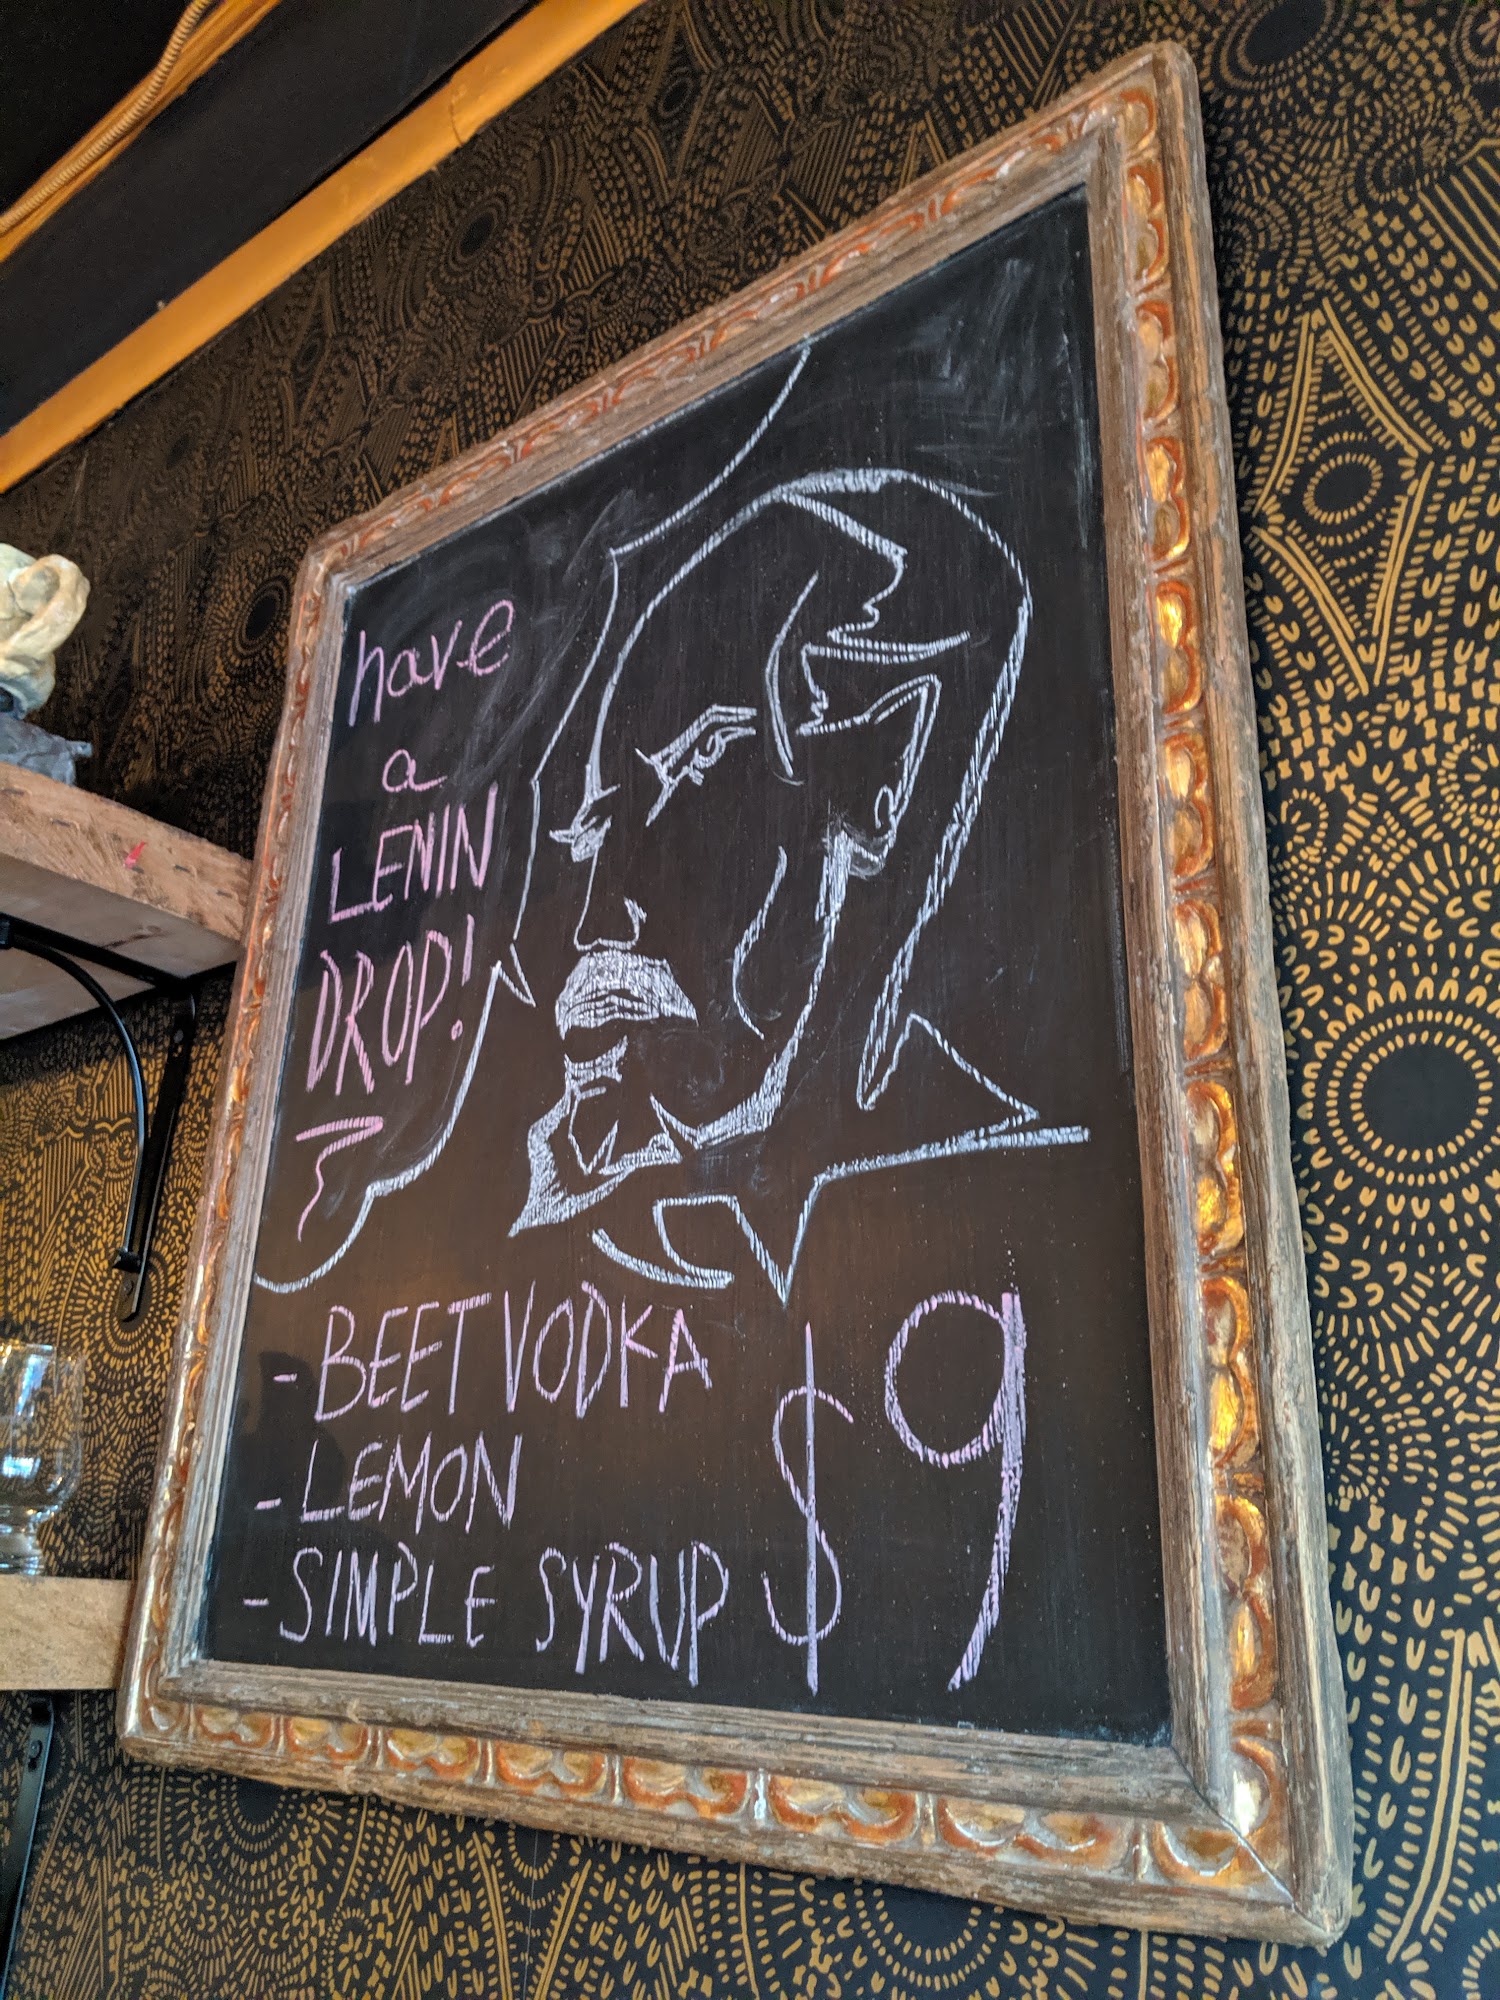 have
a
LENIN
DROP!
- BEET VODKA
- LEMON
- SIMPLE SYRUP
$9